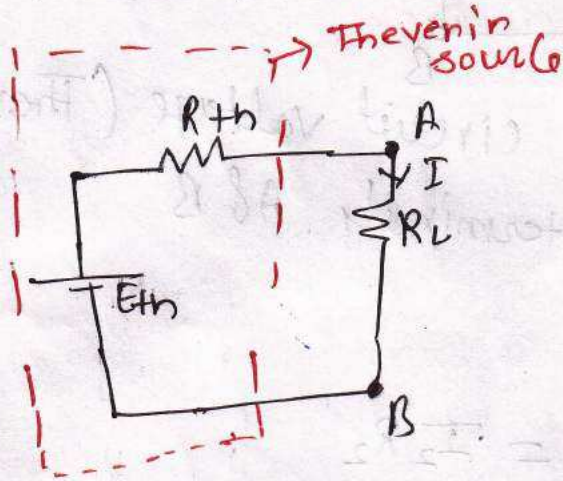 Thevenin
source
Rth
A
I
RL
Eth
B